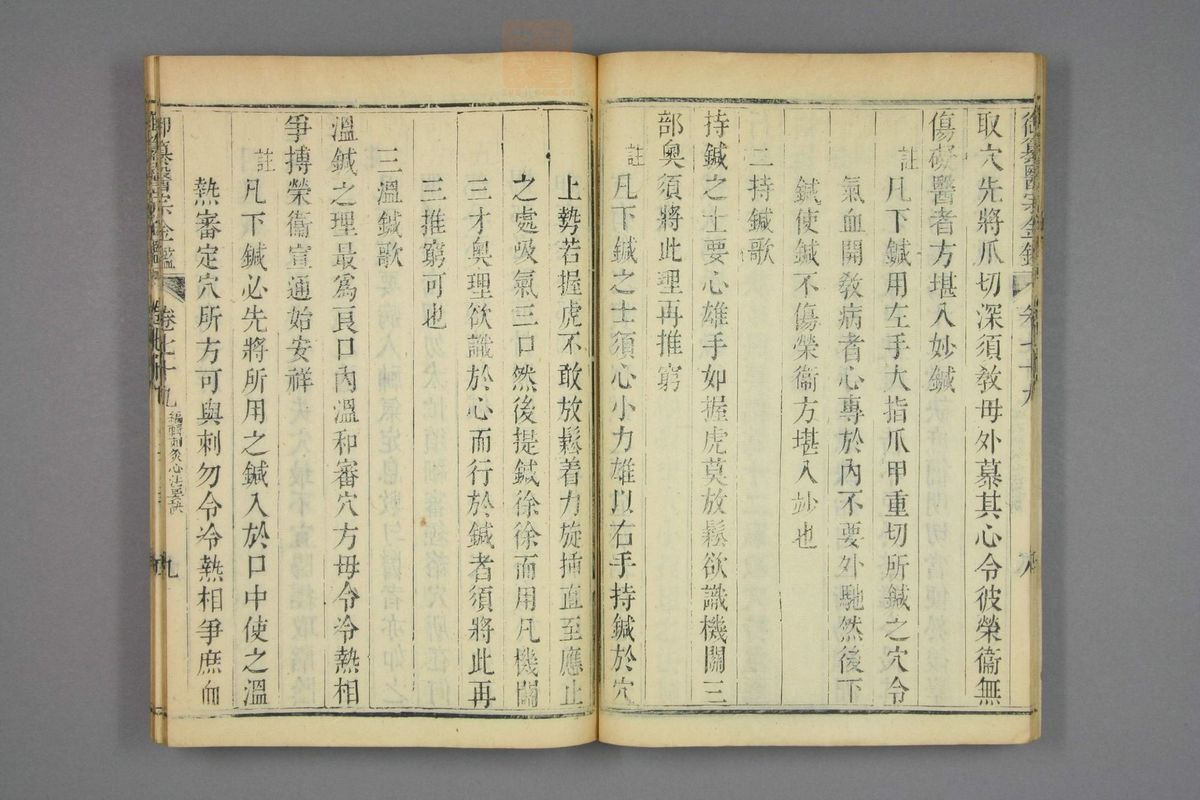 御纂醫宗金鑑 卷七十九 八
取穴先將爪切深須敎毋外慕其心令彼榮衞無
傷礙醫者方堪入妙鍼
註凡下鍼用左手大指爪甲重切所鍼之穴令
氣血開敎病者心專於內不要外馳然後下
鍼使鍼不傷榮衞方堪入妙也
二持鍼歌
持鍼之士要心雄手如握虎莫放鬆欲識機關三
部奧須將此理再推窮
註凡下鍼之士須心小力雄以右手持鍼於穴
上勢若握虎不敢放鬆着力旋插直至應止
之處吸氣三口然後提鍼徐徐而用凡機關
三才奧理欲識於心而行於鍼者須將此再
三推窮可也
三溫鍼歌
溫鍼之理最爲良口內溫和審穴方毋令冷熱相
爭搏榮衞宣通始安祥
註凡下鍼必先將所用之鍼入於口中使之溫
熱審定穴所方可與刺勿令冷熱相爭庶血
御纂醫宗金鑑 卷七十九 編輯刺灸心法要訣 九